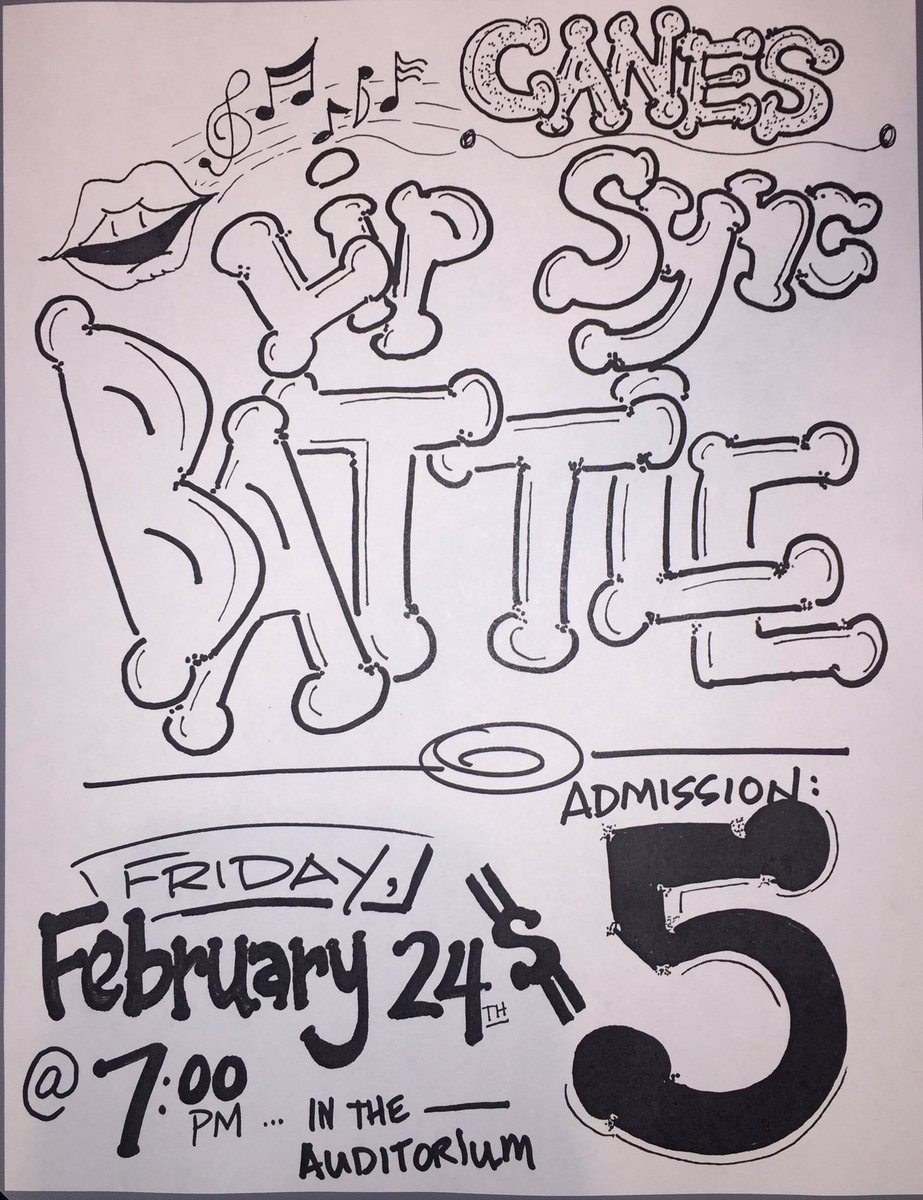 CANES
Lip Sync
BATTLE
ADMISSION:
$5
FRIDAY,
February 24TH
@ 7:00 PM ... IN THE —
AUDITORIUM